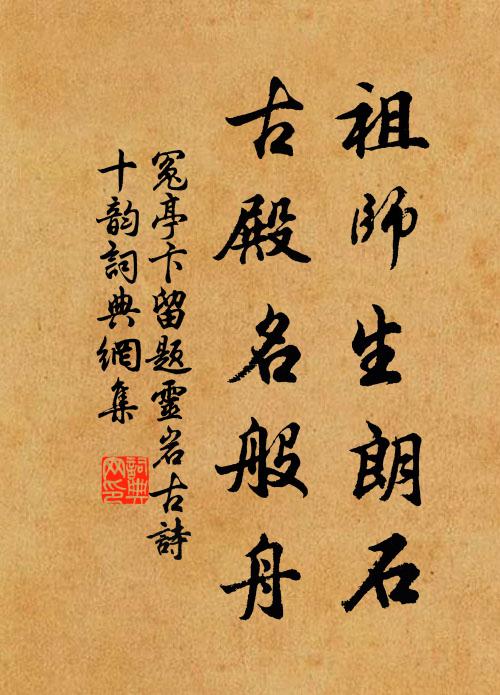 祖師生朗石
古殿名般舟
冤亭卞留题靈岩古詩
十韵詞典網集
詞典网印